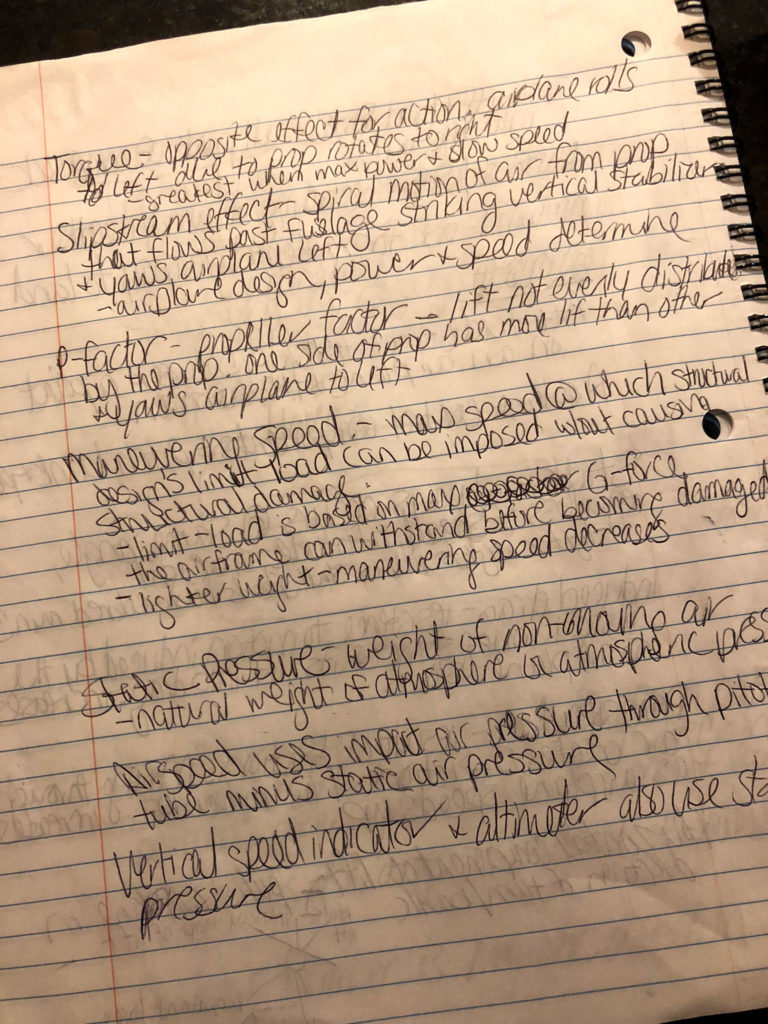 Torque - opposite effect for action, airplane rolls
to left due to prop rotates to right
greatest when max power & slow speed
Slipstream effect - spiral motion of air from prop
that flows past fuselage striking vertical stabilizer
& yaws airplane left
- airplane design, power & speed determine
P-factor - propeller factor - lift not evenly distribute
by the prop. one side of prop has more lif than other
& yaws airplane to left
Maneuvering speed - max speed @ which structural
design's limit-load can be imposed w/out causing
structural damage.
- limit-load is based on max G-force
the airframe can withstand before becoming damaged
- lighter weight - maneuvering speed decreases
Static Pressure - weight of non-moving air
- natural weight of atmosphere is atmospheric press
Airspeed uses impact air pressure through pitot
tube minus static air pressure
Vertical speed indicator & altimeter also use sta
pressure